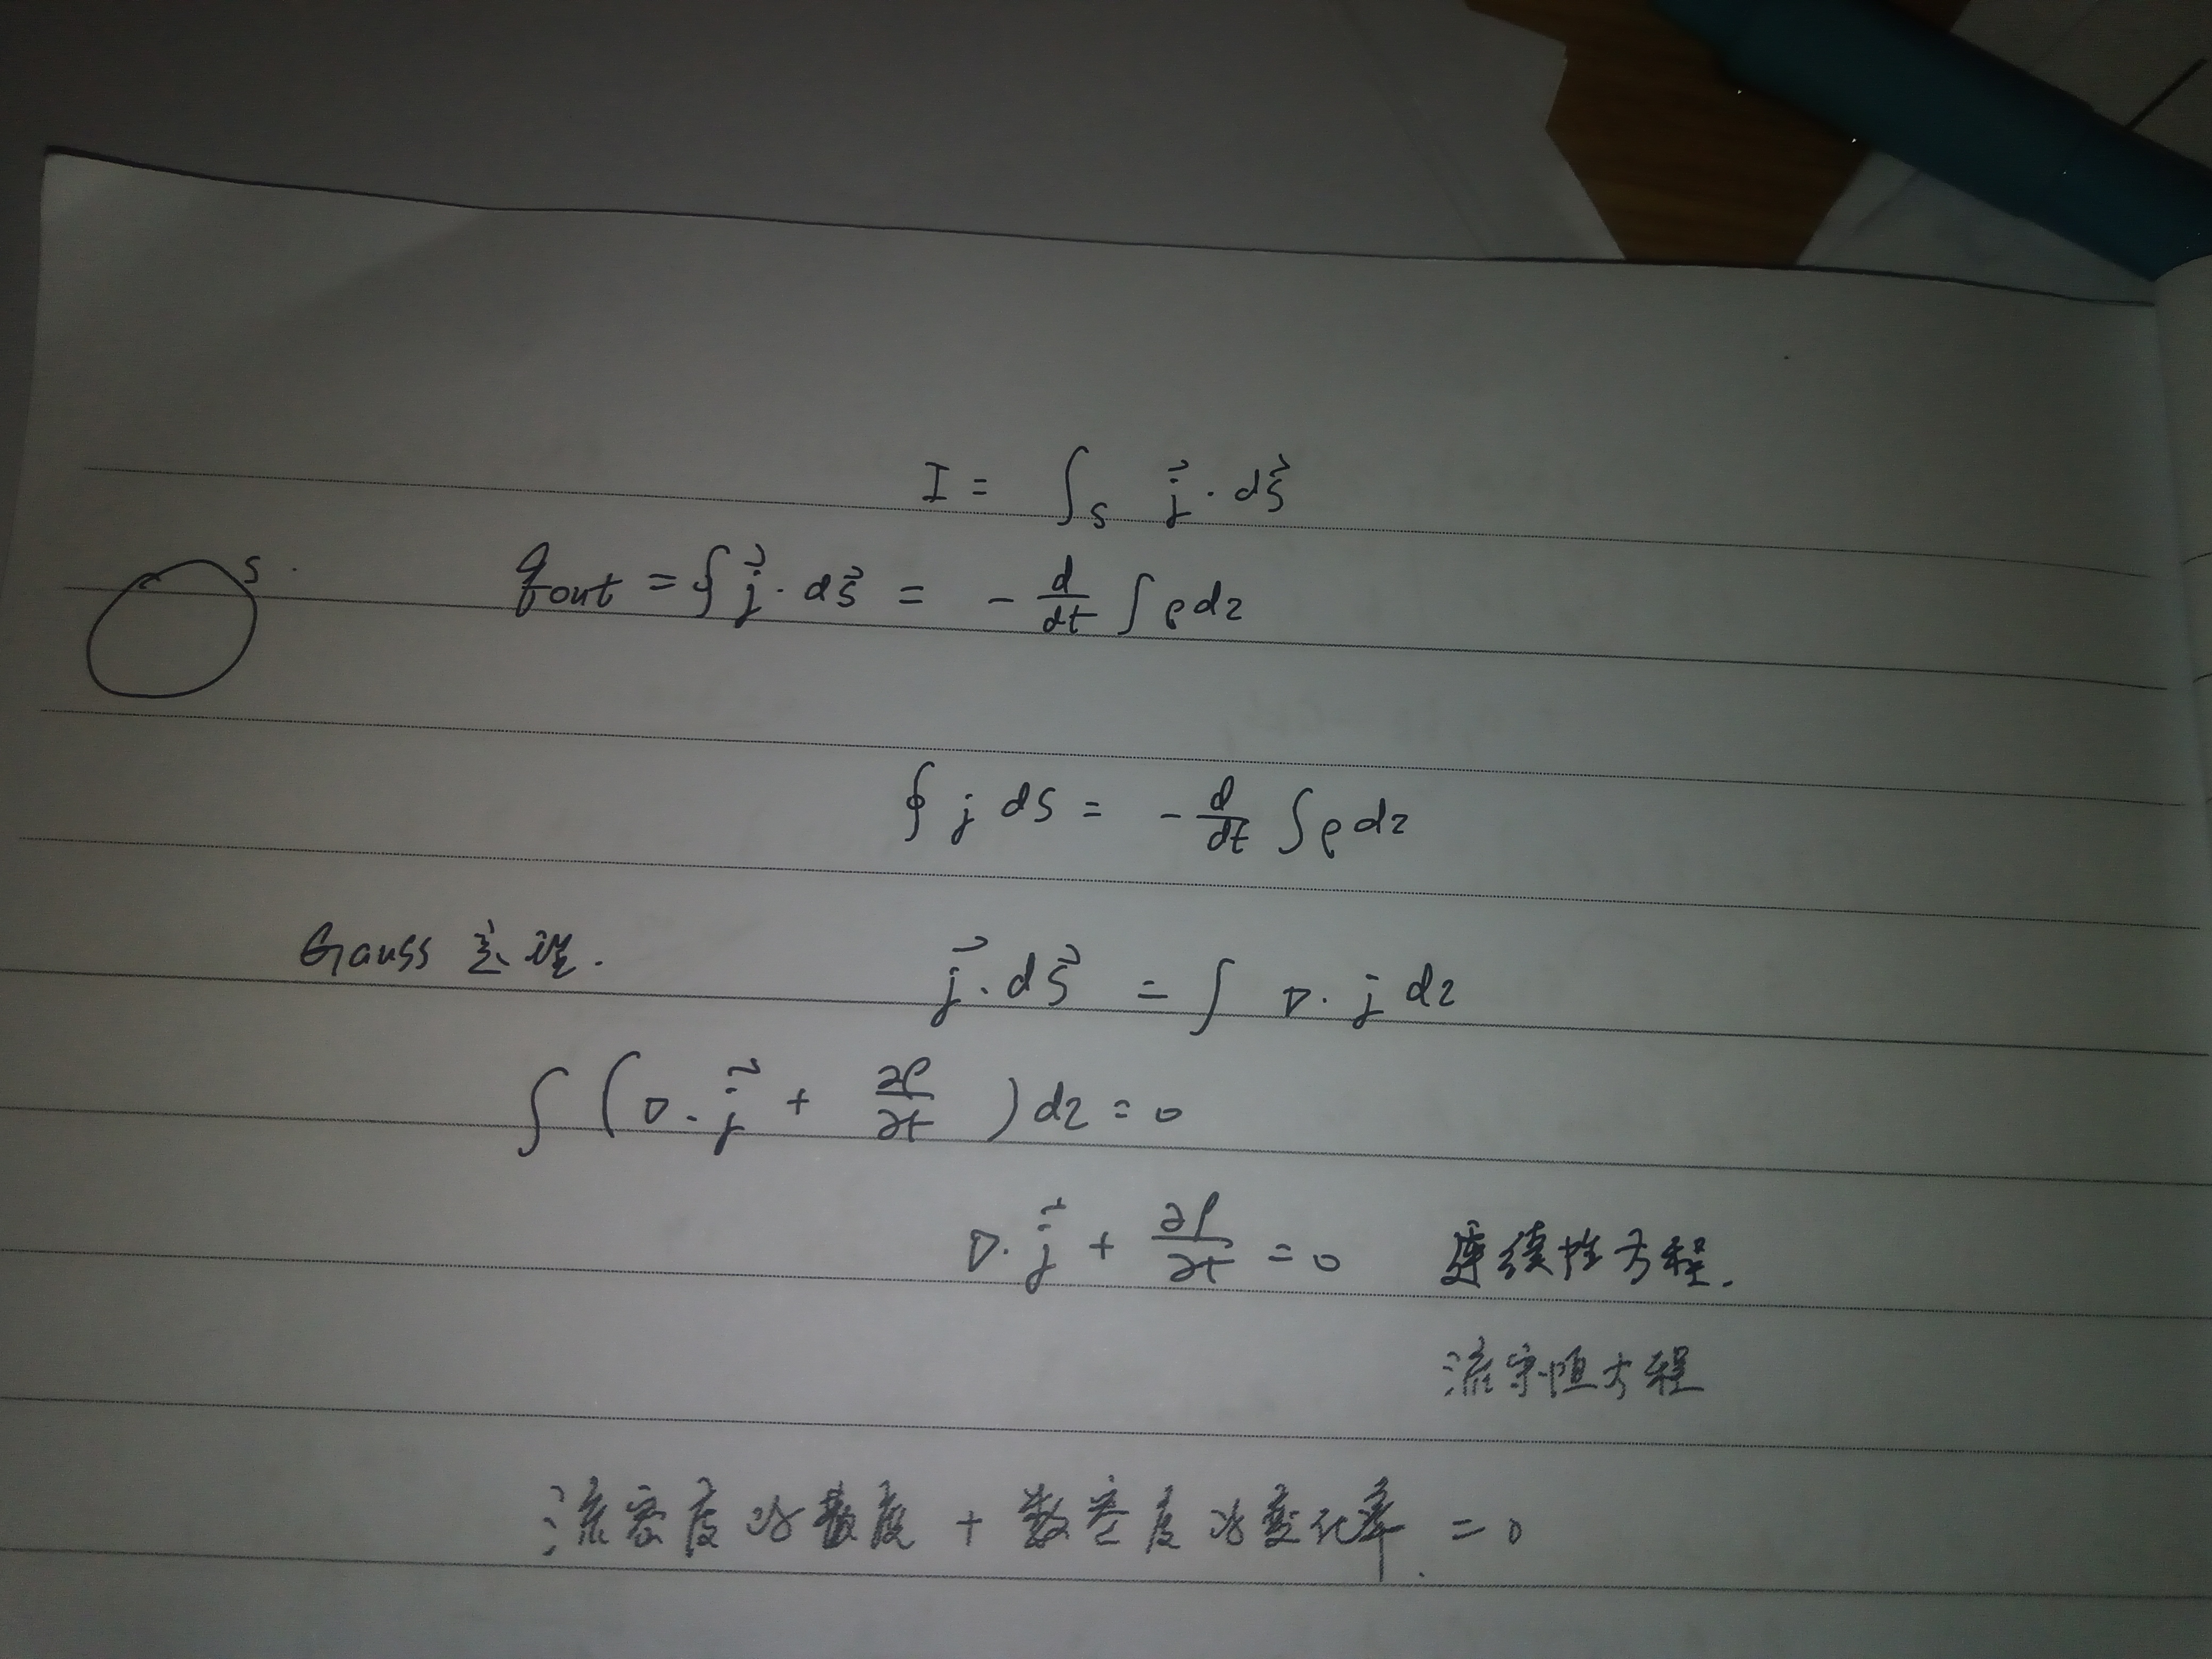 I = ∫_S j⃗ · dS⃗
S.
q_out = ∮ j⃗ · dS⃗ = - d/dt ∫ρdz
∮ j dS = - d/dt ∫ρdz
Gauss 定理. j⃗ · dS⃗ = ∫ ∇· j dz
∫ (∇· j⃗ + ∂ρ/∂t ) dz = 0
∇· j⃗ + ∂ρ/∂t = 0 连续性方程.
流守恒方程
流密度的散度 + 数密度的变化率. = 0